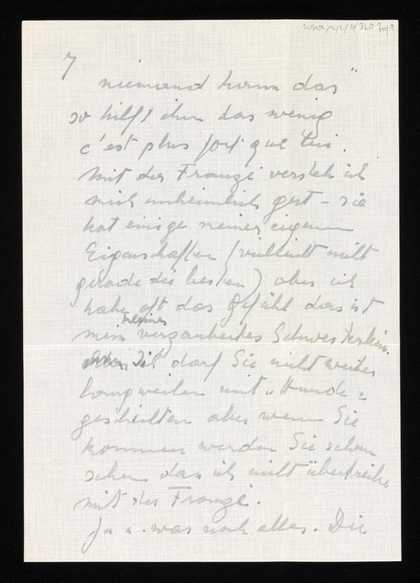 7
niemand kann das"
so hilft ihm das wenig
c'est plus fort que lui.
Mit der Franzi versteh ich
mich unheimlich gut – sie
hat einige meiner eigenen
Eigenschaften (vielleicht nicht
gerade die besten) aber ich
habe oft das Gefühl das ist
mein kleines Schwesterlein.
Ich darf Sie nicht weiter
langweilen mit "Hunde"
geschichten aber wenn Sie
kommen werden Sie schon
sehen das ich nicht übertreibe
mit der Franzi.
Ja u. was noch alles. Die